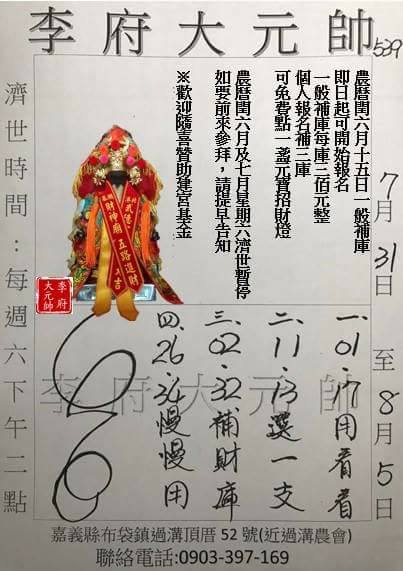 李府大元帥
539
7月31日至8月5日
農曆閏六月十五日一般補庫
即日起可開始報名
一般補庫每庫三佰元整
個人報名補三庫
可免費點一盞元寶招財燈
農曆閏六月及七月星期六濟世暫停
如要前來參拜，請提早告知
※歡迎隨喜贊助建宮基金
濟世時間：每週六下午二點
財神廟
五路進財
李府大元帥
李府大元帥
一、01、17用看看
二、11、13選一支
三、02、32補財庫
四、26、34慢慢用
嘉義縣布袋鎮過溝頂厝 52 號(近過溝農會)
聯絡電話:0903-397-169